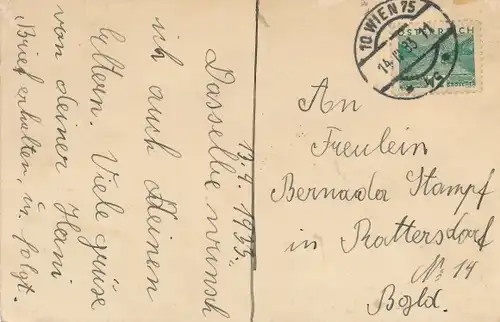 13.4.1935.
Dasselbe wünsch
ich auch deinen
Eltern. Viele grüse
von deiner Hani
Brief erhalten, u. folgt.
10 WIEN 75
ÖSTERREICH
An
Freulein
Bernada Stampf
in Rattersdorf
No 14
Bgld.